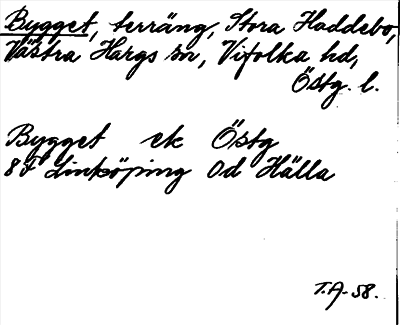 Bygget, terräng, Stora Haddebo,
Västra Hargs sn, Vifolka hd,
Östg. l.
Bygget ek Östg
8F Linköping 0d Hälla
T.A. 58.